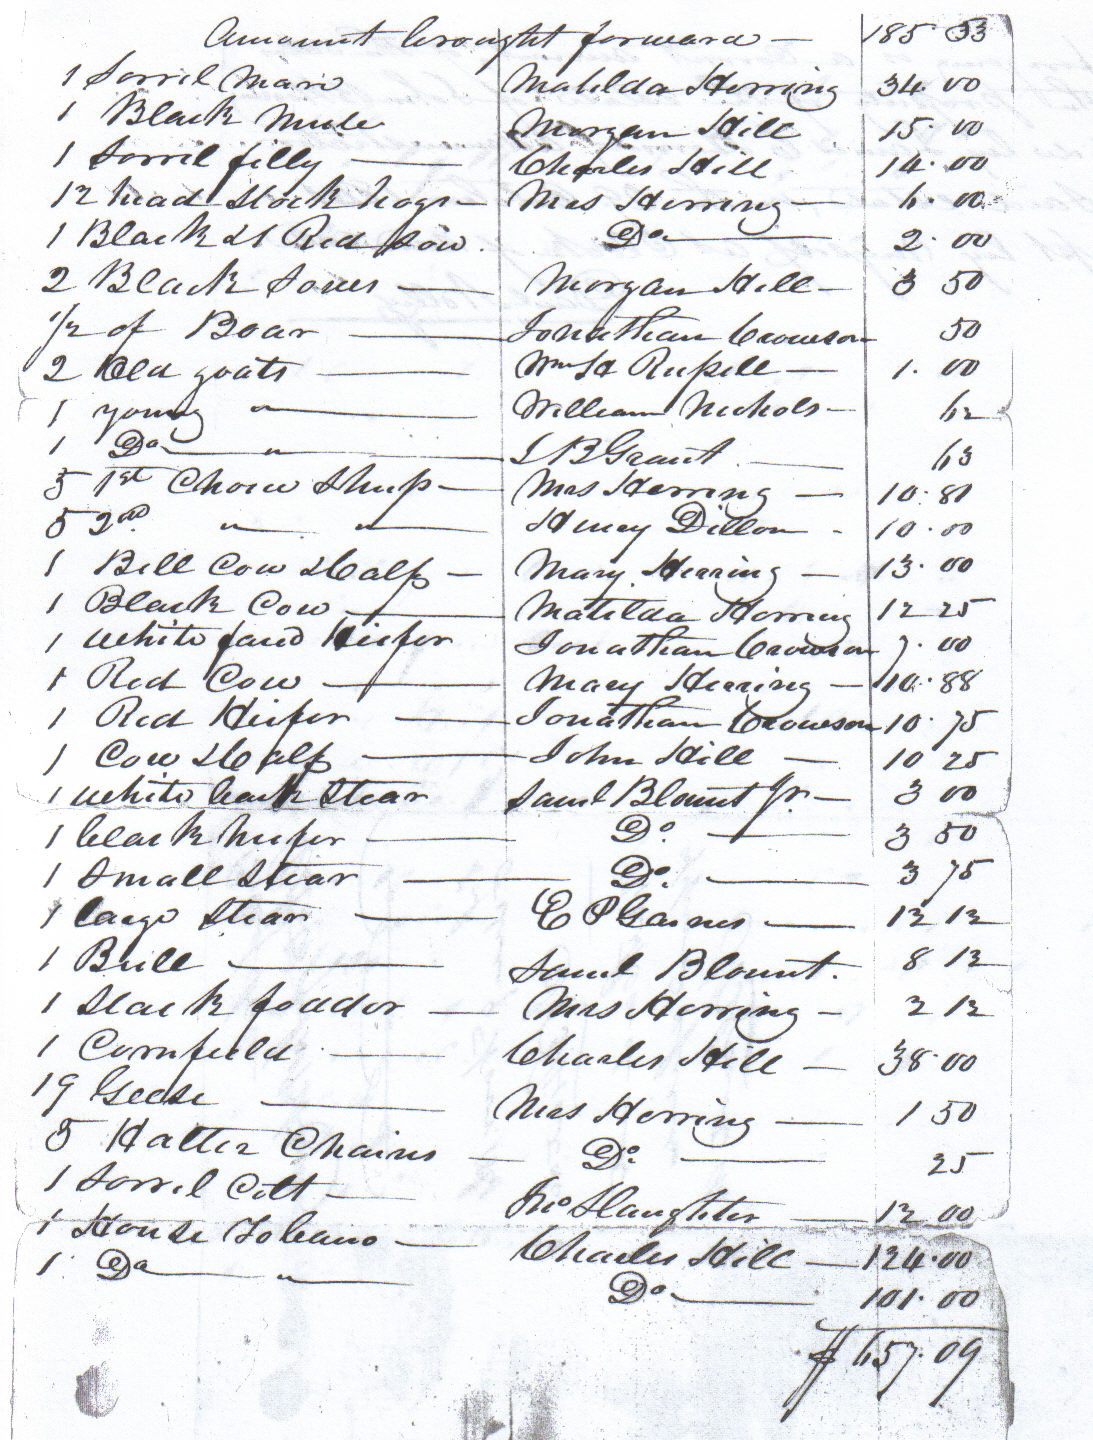 Amount brought forward — 185.53
1 Sorril Mare Matilda Herring 34.00
1 Black Mule Morgan Hill 15.00
1 Sorril filly — Charles Hill 14.00
12 head Stock hogs — Mrs Herring — 6.00
1 Black & 1 Red Sow. Do — 2.00
2 Black Sows — Morgan Hill — 3 50
1/2 of Boar — Jonathan Crowson 50
2 Old goats — Wm H Russell — 1.00
1 young " — William Nichols — 62
1 Do — " — S B Grant — 63
5 1st Choice Sheep — Mrs Herring — 10.81
5 2nd " " — Henry Dillon - 10.00
1 Bell Cow & Calf — Mary Herring — 13.00
1 Black Cow — Matilda Herring 12 25
1 White faced Heifer Jonathan Crowson 7.00
1 Red Cow — Mary Herring — 10.88
1 Red Heifer — Jonathan Crowson 10.75
1 Cow & Calf — John Hill — 10 25
1 white back Stear Saml Blount Jr. — 3 00
1 black heifer — Do. — 3 50
1 Small Stear — Do. — 3 75
1 large Stear — E P Gaines — 12 12
1 Bull — Saml Blount. 8 12
1 Stack foddor — Mrs Herring — 2 12
1 Cornfield — Charles Hill — 38.00
19 Geese — Mrs Herring — 1 50
5 Halter Chains — Do. — 25
1 Sorrel Colt — Jno Slaughter — 12 00
1 House Tobacco — Charles Hill — 124.00
1 Do — " — Do. — 101.00
$657.09